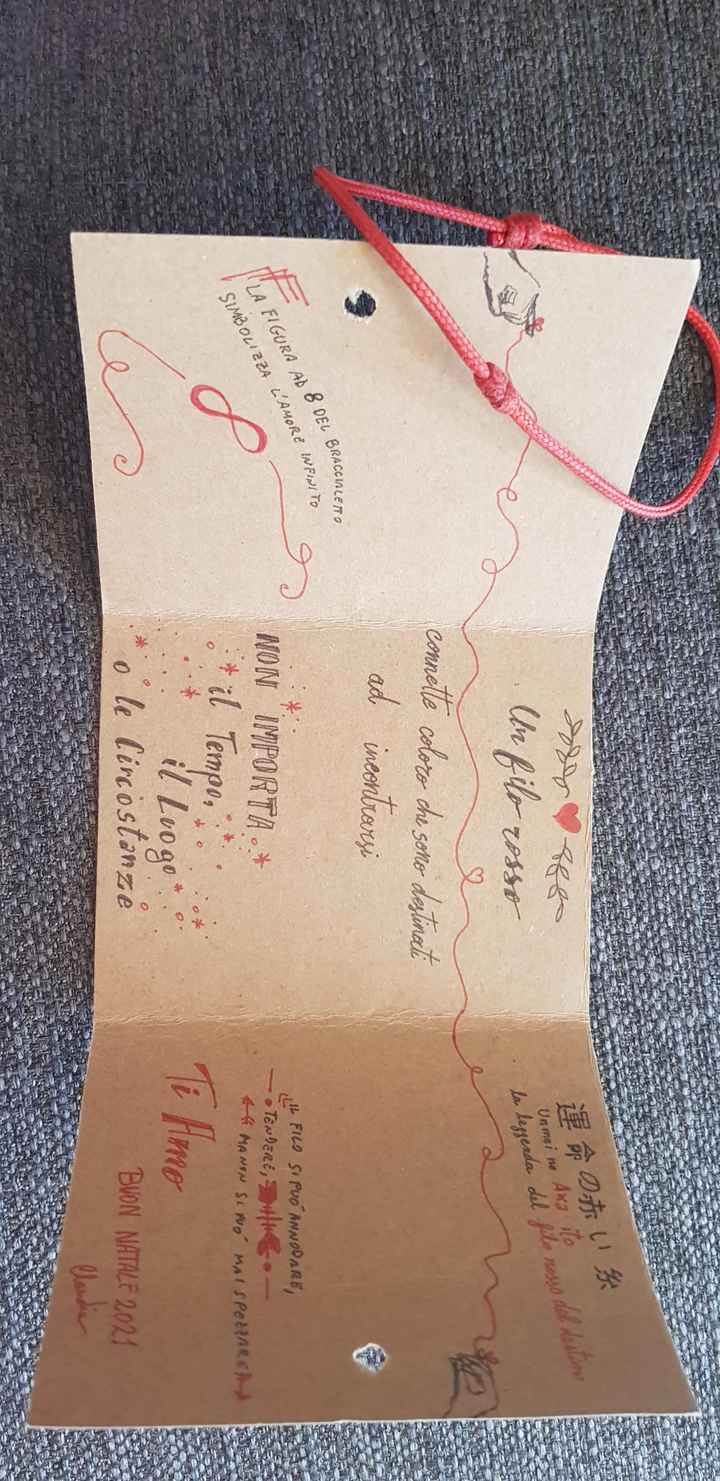 LA FIGURA AD 8 DEL BRACCIALETTO
SIMBOLIZZA L'AMORE INFINITO
Un filo rosso
connette coloro che sono destinati
ad incontrarsi
NON IMPORTA
il Tempo,
il Luogo
o le Circostanze
運命の赤い糸
Unmei no Aka ito
la leggenda del filo rosso del destino
IL FILO SI PUÒ ANNODARE,
TENDERE,
MA NON SI PUÒ MAI SPEZZARE
Ti Amo
BUON NATALE 2021
Claudia